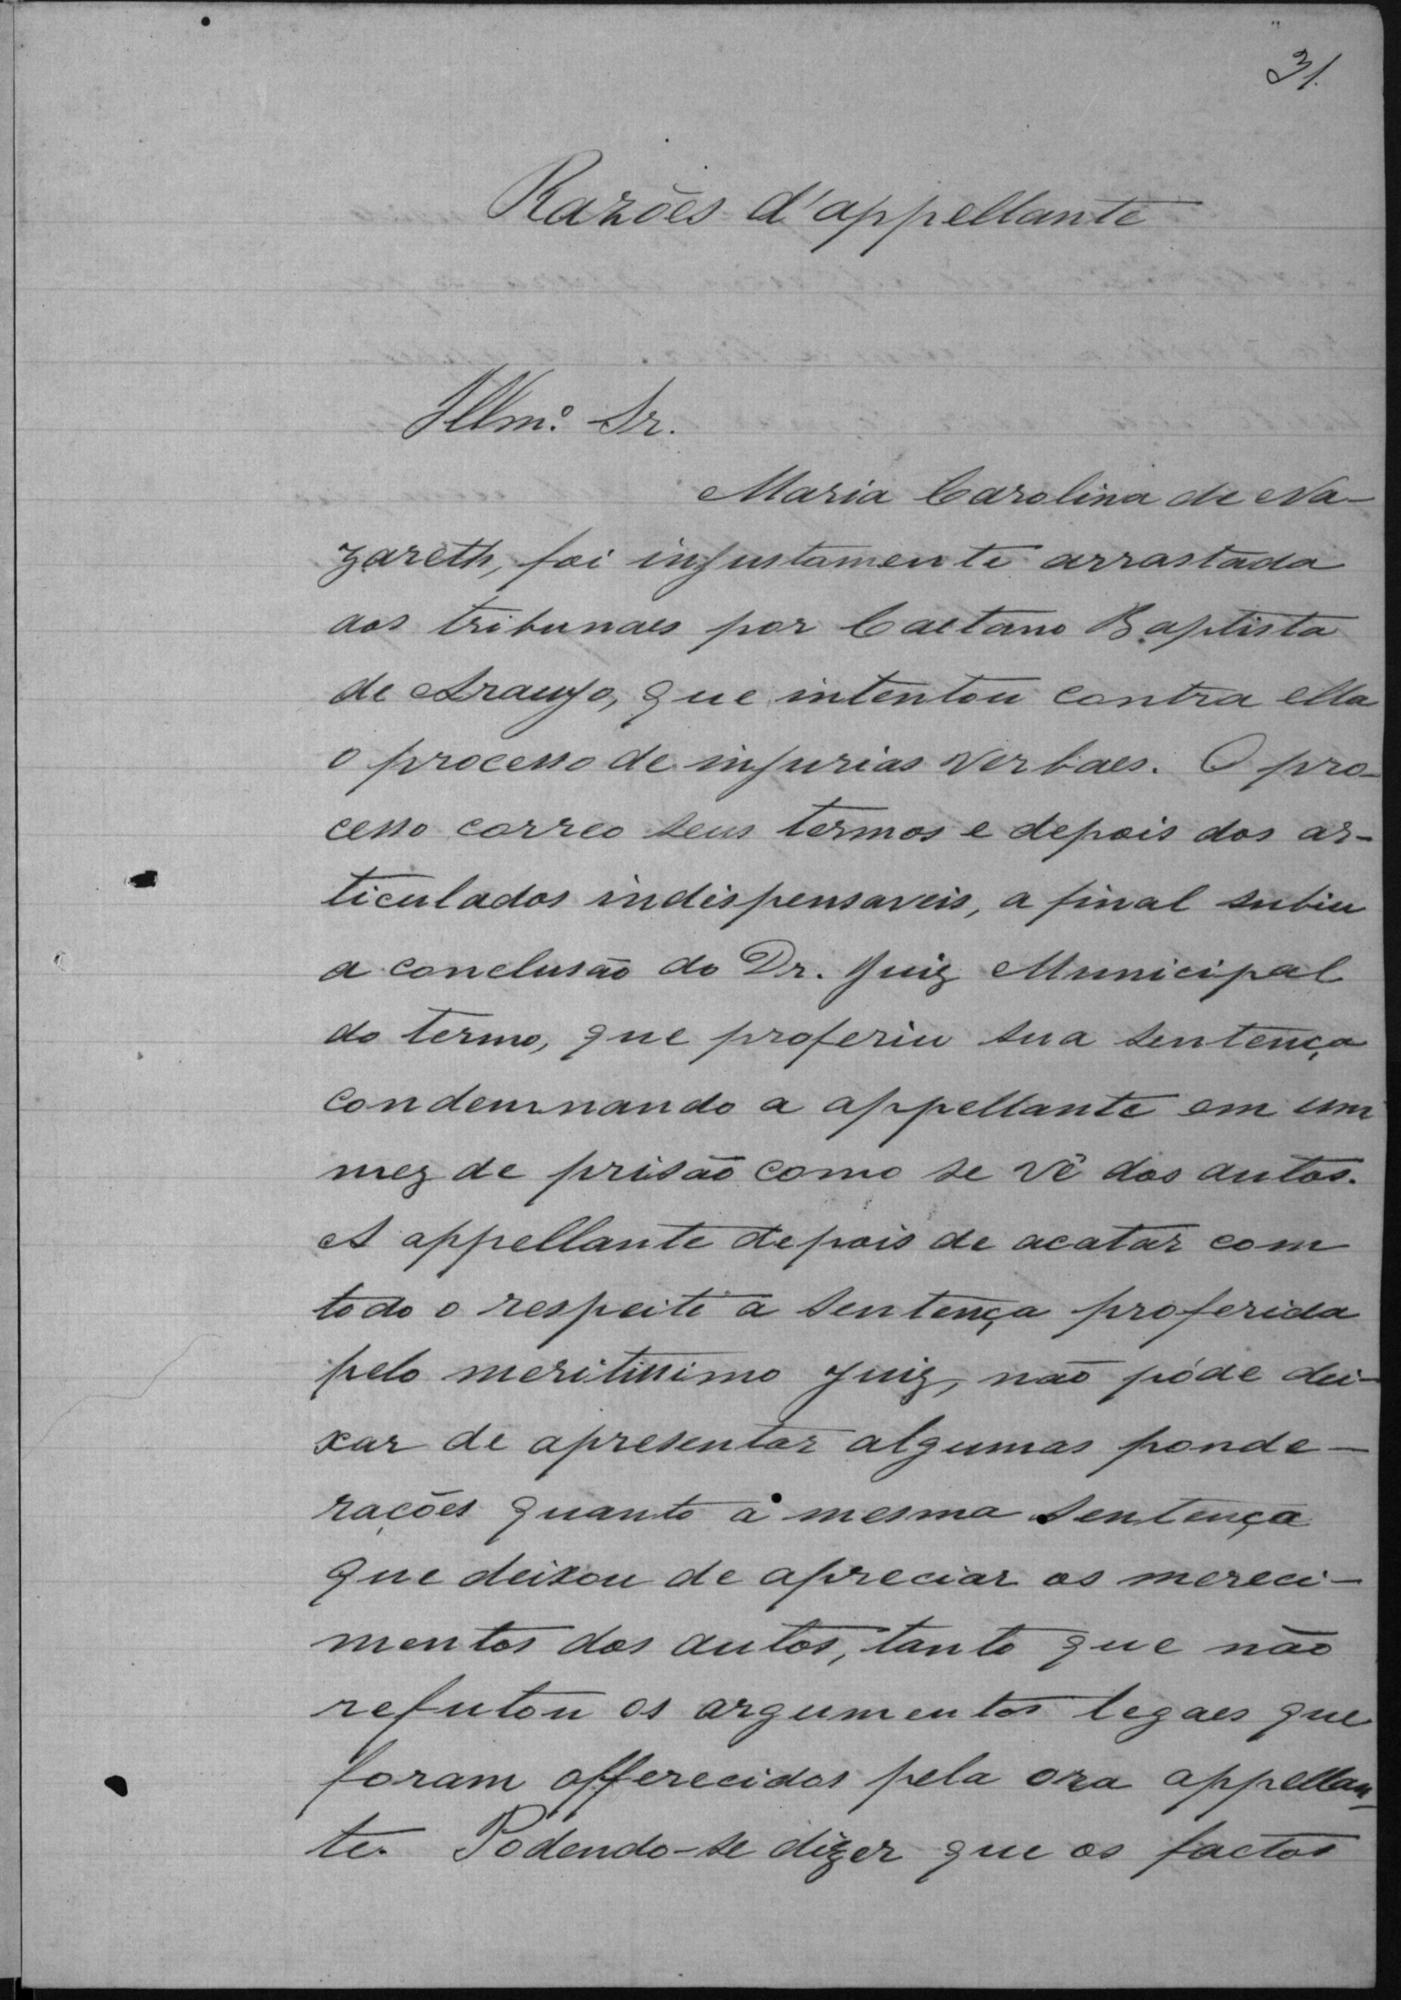 31.
Razões d'appellante
Illmº. Sr.
Maria Carolina de Na-
zareth, foi injustamente arrastada
aos tribunaes por Caetano Baptista
de Araujo, que intentou contra ella
o processo de injurias verbaes. O pro-
cesso correo seus termos e depois dos ar-
ticulados indispensaveis, a final subiu
a conclusão do Dr. Juiz Municipal
do termo, que proferiu sua sentença
condemnando a appellante em um
mez de prisão como se vê dos autos.
A appellante depois de acatar com
todo o respeito a sentença proferida
pelo meritissimo Juiz, não póde dei-
xar de apresentar algumas ponde-
rações quanto à mesma sentença
que deixou de apreciar os mereci-
mentos dos autos, tanto que não
refutou os argumentos legaes que
foram offerecidos pela ora appellan-
te. Podendo-se dizer que os factos